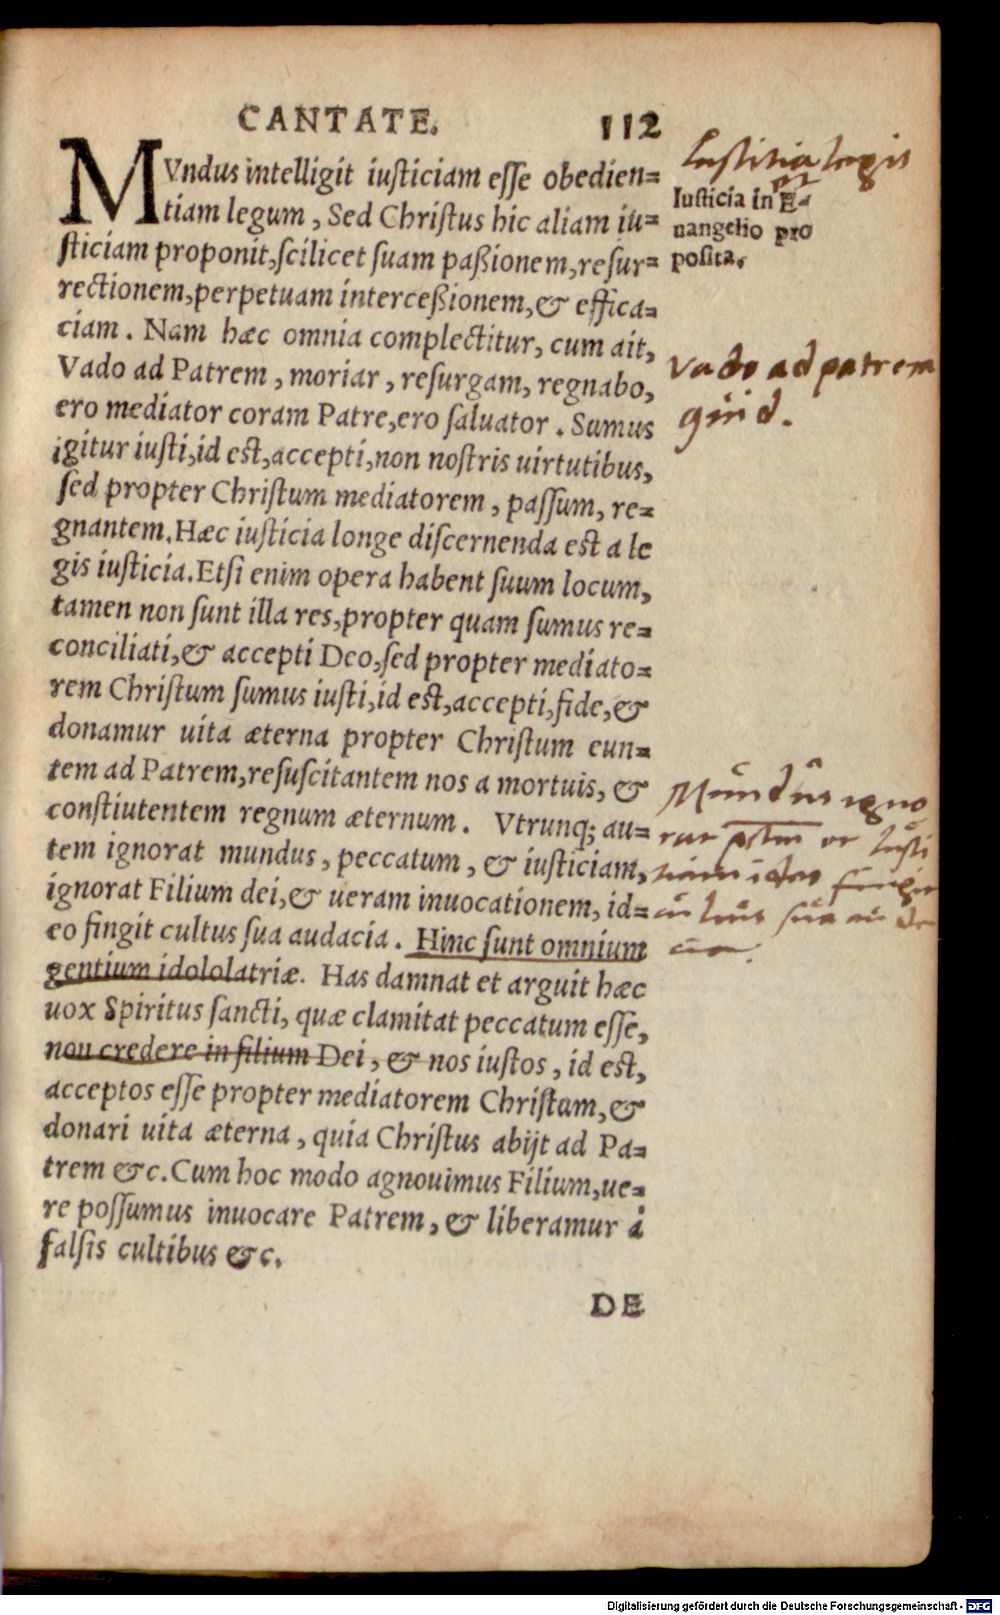 CANTATE. 112
MVndus intelligit iusticiam esse obedien=
tiam legum, Sed Christus hic aliam iu=
sticiam proponit, scilicet suam paßionem, resur=
rectionem, perpetuam interceßionem, & effica=
ciam. Nam hæc omnia complectitur, cum ait,
Vado ad Patrem, moriar, resurgam, regnabo,
ero mediator coram Patre, ero saluator. Sumus
igitur iusti, id est, accepti, non nostris uirtutibus,
sed propter Christum mediatorem, passum, re=
gnantem. Hæc iusticia longe discernenda est a le
gis iusticia. Etsi enim opera habent suum locum,
tamen non sunt illa res, propter quam sumus re=
conciliati, & accepti Deo, sed propter mediato=
rem Christum sumus iusti, id est, accepti, fide, &
donamur uita æterna propter Christum eun=
tem ad Patrem, resuscitantem nos a mortuis, &
constiutentem regnum æternum. Vtrunq; au=
tem ignorat mundus, peccatum, & iusticiam,
ignorat Filium dei, & ueram inuocationem, id=
eo fingit cultus sua audacia. Hinc sunt omnium
gentium idololatriæ. Has damnat et arguit hæc
uox Spiritus sancti, quæ clamitat peccatum esse,
non credere in filium Dei, & nos iustos, id est,
acceptos esse propter mediatorem Christum, &
donari uita æterna, quia Christus abijt ad Pa=
trem &c. Cum hoc modo agnouimus Filium, ue=
re possumus inuocare Patrem, & liberamur à
falsis cultibus &c.
DE
Iustitia legis
et
Iusticia in E=
uangelio pro
posita.
Vado ad patrem
quid.
Mundus igno
rat pctm et Iusti
tiam ideo fingit
cultus sua auda
cia.
Digitalisierung gefördert durch die Deutsche Forschungsgemeinschaft - DFG